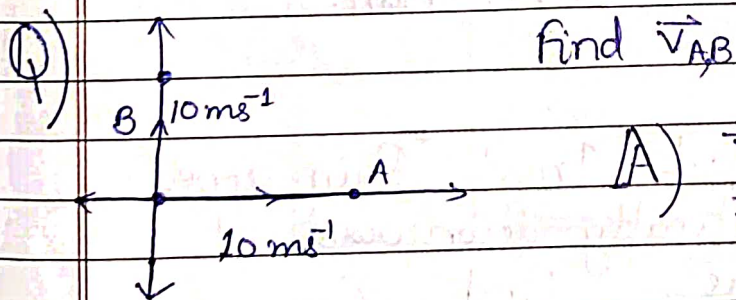 Q)
Find V⃗A,B
B 10 ms⁻¹
A
A)
10 ms⁻¹